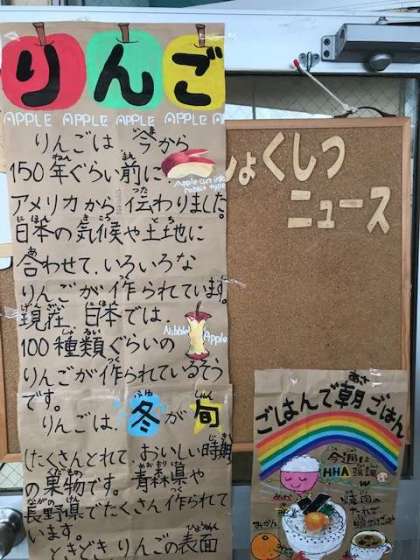 りんご
APPLE APPLE APPLE APPLE
りんごは 今から
150年ぐらい前に
アメリカから伝わりました。
日本の気候や土地に
合わせて、いろいろな
りんごが作られています。
現在 日本では、
100種類ぐらいの
りんごが作られているそう
です。
りんごは、冬が旬
(たくさんとれて おいしい時期)
の果物です。青森県や
長野県でたくさん作られて
います。
ときどき りんごの表面
Apple cut into
rabbit type
Nibbled
Apple
しょくしつ
ニュース
ごはんで朝ごはん
今週は